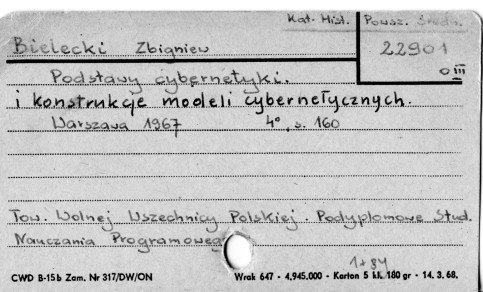 Kat. Hist. Powsz. Średn.
Bielecki Zbigniew 22901
0 III
Podstawy cybernetyki.
i konstrukcje modeli cybernetycznych.
Warszawa 1967 4°, s. 160
Tow. Wolnej Wszechnicy Polskiej. Podyplomowe Stud.
Nauczania Programowego
1+84
CWD B-15b Zam. Nr 317/DW/ON Wrak 647 - 4.945.000 - Karton 5 kl. 180 gr - 14. 3. 68.